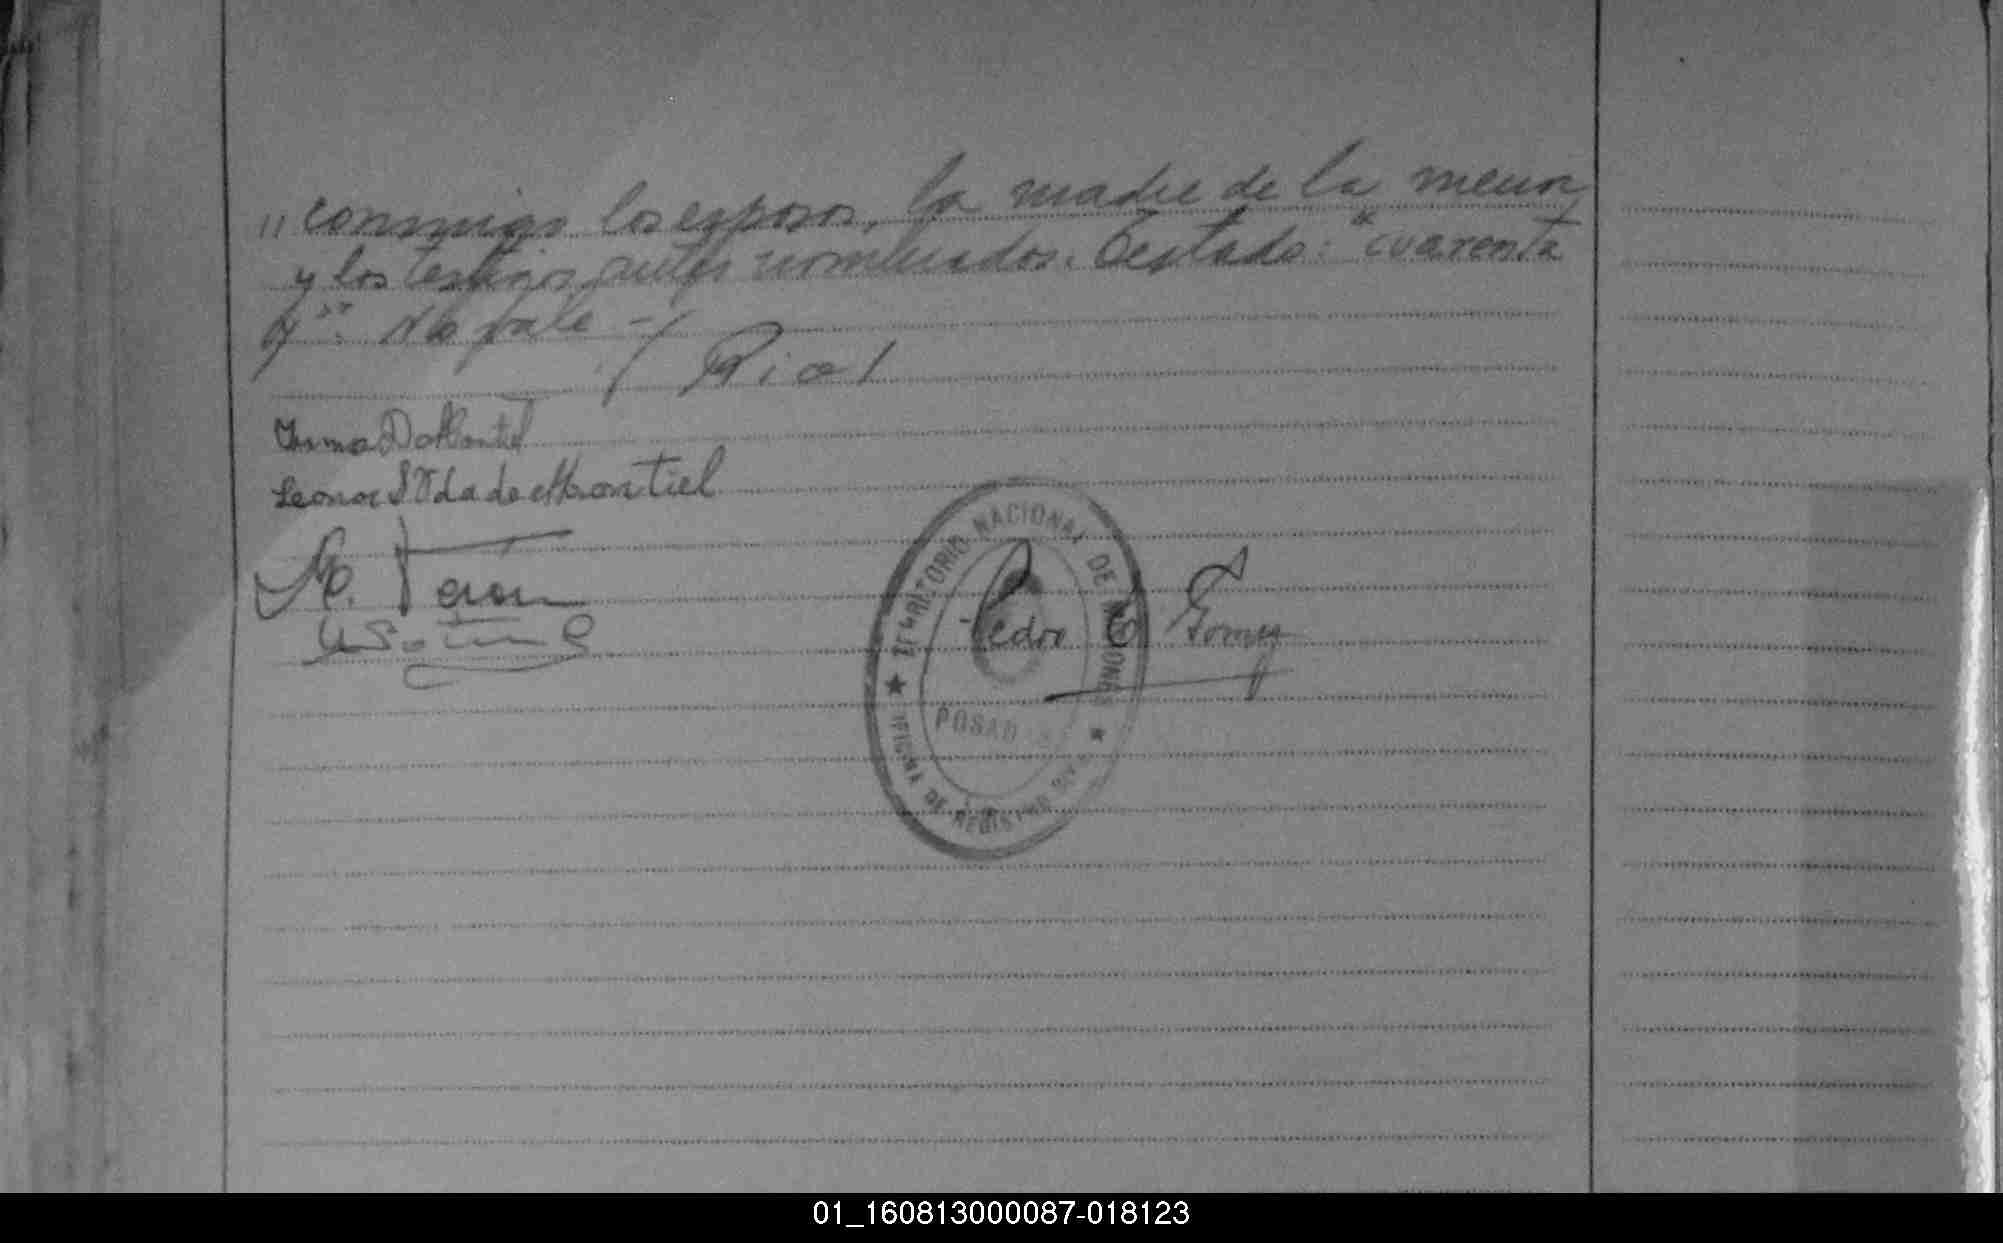 " conmigo los esposos, la madre de la menor
y los testigos antes nombrados. Testado: "cuarenta
y": No vale -
Rial
Irma D Montiel
Leonor S Vda de Montiel
Terán
TERRITORIO NACIONAL DE MISIONES
Pedro E Gomez
POSADAS
OFICINA DE REGISTRO CIVIL
01_160813000087-018123